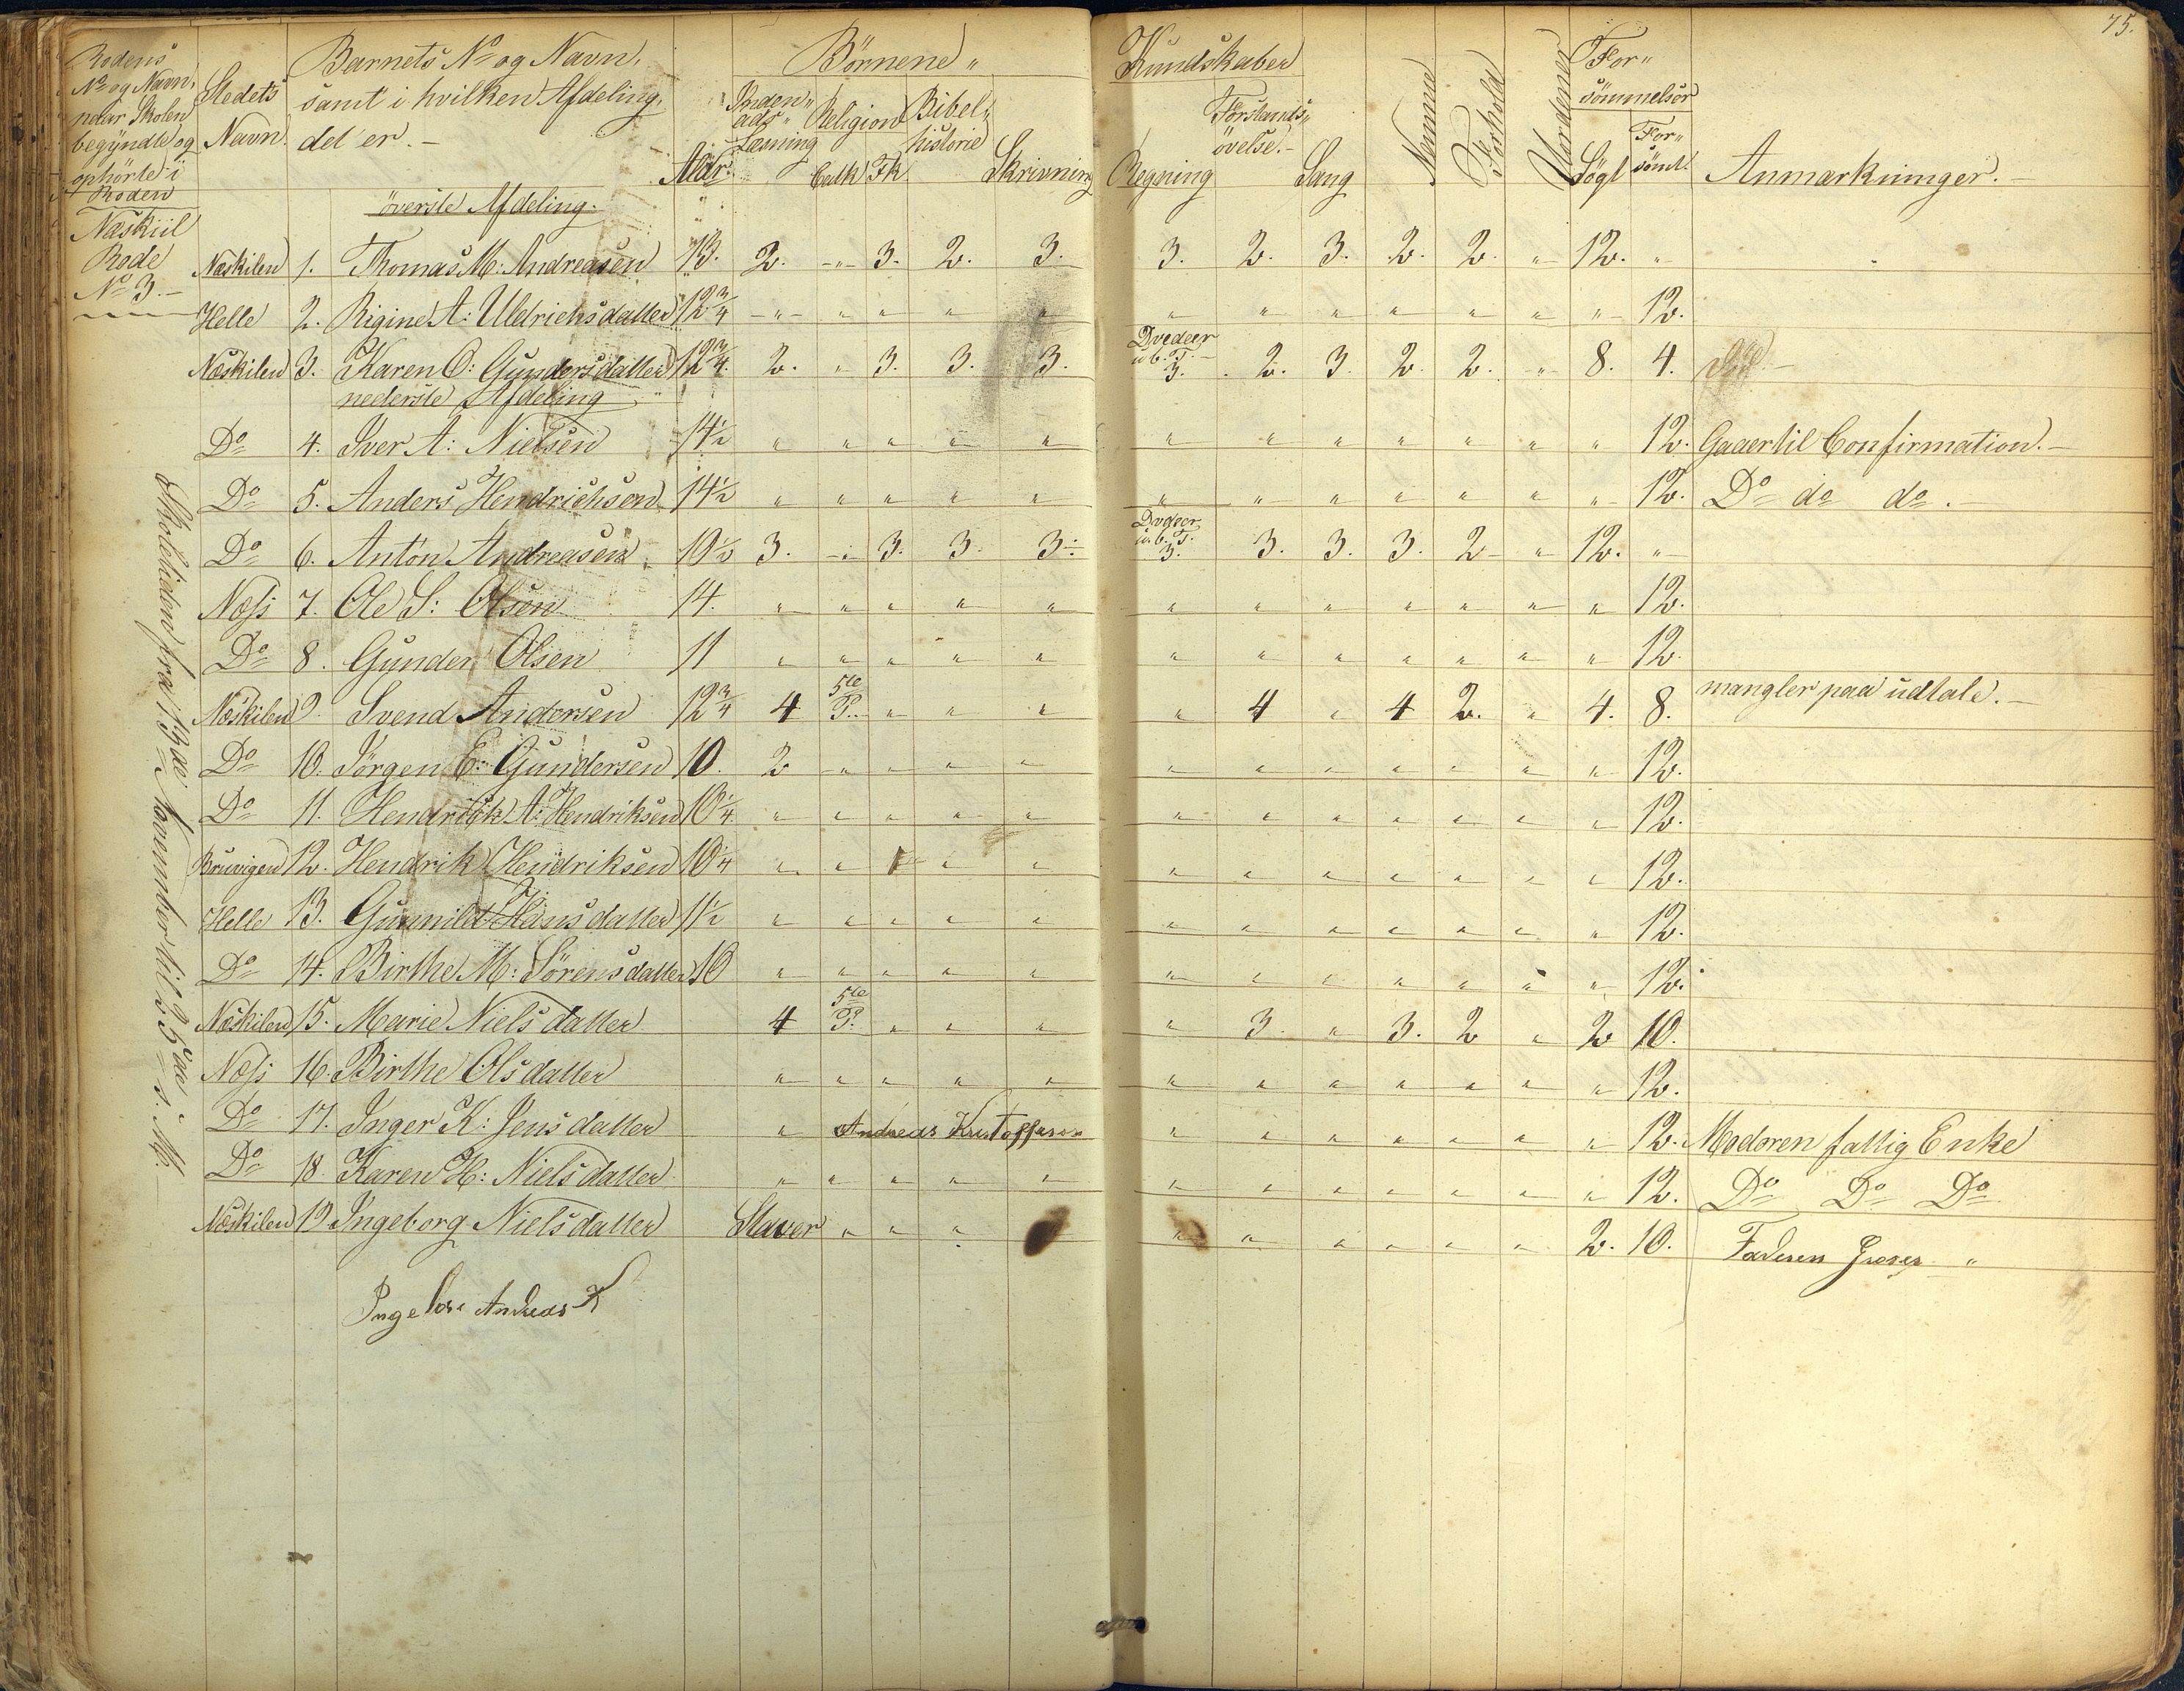 75.
Rodens
No og Navn,
naar Skolen
begyndte og
ophörte i
Roden
Stedets
Navn.
Barnets No og Navn,
samt i hvilken Afdeling
det er. —
Alder.
Börnene „
Inden„
ads„
Læsning
Religion
Catk Fk
Bibel„
historie
Skrivning
Kundskaber
Regning
Forstands„
övelse. —
Sang
Nemme
Forhold
Uordener
For„
sömmelser
Sögt
For„
sömt.
Anmærkninger. —
Næskiil
Rode
No 3. —
Skoletiden fra 13de November til 25de s. M.
överste Afdeling.
Næskilen 1. Thomas M: Andreasen 13. 2. „ 3. 2. 3. 3. 2. 3. 2. 2. „ 12. „
Helle 2. Rigine A: Uldrichsdatter 12 3/4 „ „ „ „ „ „ „ „ „ „ „ „ 12.
Næskilen 3. Karen O: Gundersdatter 12 3/4. 2. „ 3. 3. 3. Dvedeer u. b. T. 3. 2. 3. 2. 2. „ 8. 4.
nederste Afdeling „
Do 4. Iver A: Nielsen 14 1/2 „ „ „ „ „ „ „ „ „ „ „ „ 12. Gaaer til Confirmation. —
Do 5. Anders Hendrichsen 14 1/2 „ „ „ „ „ „ „ „ „ „ „ „ 12. Do do do. —
Do 6. Anton Andreasen 10 1/2 3. „ 3. 3. 3. Dvdeer u. b. T. 3. 3. 3. 3. 2 „ 12. „
Næss 7. Ole S: Olsen 14. „ „ „ „ „ „ „ „ „ „ „ „ 12.
Do 8. Gunder Olsen 11 „ „ „ „ „ „ „ „ „ „ „ „ 12.
Næskilen 9. Svend Andersen 12 3/4 4 5te P. „ „ „ „ 4 „ 4 2. „ 4. 8. mangler paa udtale. —
Do 10. Jörgen E: Gundersen 10. 2 „ „ „ „ „ „ „ „ „ „ „ 12.
Do 11. Hendrick A: Hendriksen 10 1/4 „ „ „ „ „ „ „ „ „ „ „ „ 12.
Bruvigen 12. Hendrik Hendriksen 10 1/4 „ „ „ „ „ „ „ „ „ „ „ 12.
Helle 13. Gunnild Hansdatter 11 1/2 „ „ „ „ „ „ „ „ „ „ „ „ 12.
Do 14. Birthe M: Sörensdatter 10 „ „ „ „ „ „ „ „ „ „ „ „ 12.
Næskilen 15. Marie Nielsdatter 4 5te P. „ „ „ „ 3. „ 3. 2 „ 2 10.
Næss 16. Birthe Olsdatter „ „ „ „ „ „ „ „ „ „ „ „ 12.
Do 17. Inger K: Jensdatter „ Andreas Kristoffersen „ „ „ „ „ „ „ 12. Moderen fattig Enke
Do 18. Karen H: Nielsdatter „ „ „ „ „ „ „ „ „ „ „ „ 12. Do Do Do
Næskilen 19. Ingeborg Nielsdatter Staver „ „ „ „ „ „ „ „ „ 2. 10. Faderen „
Andreas K